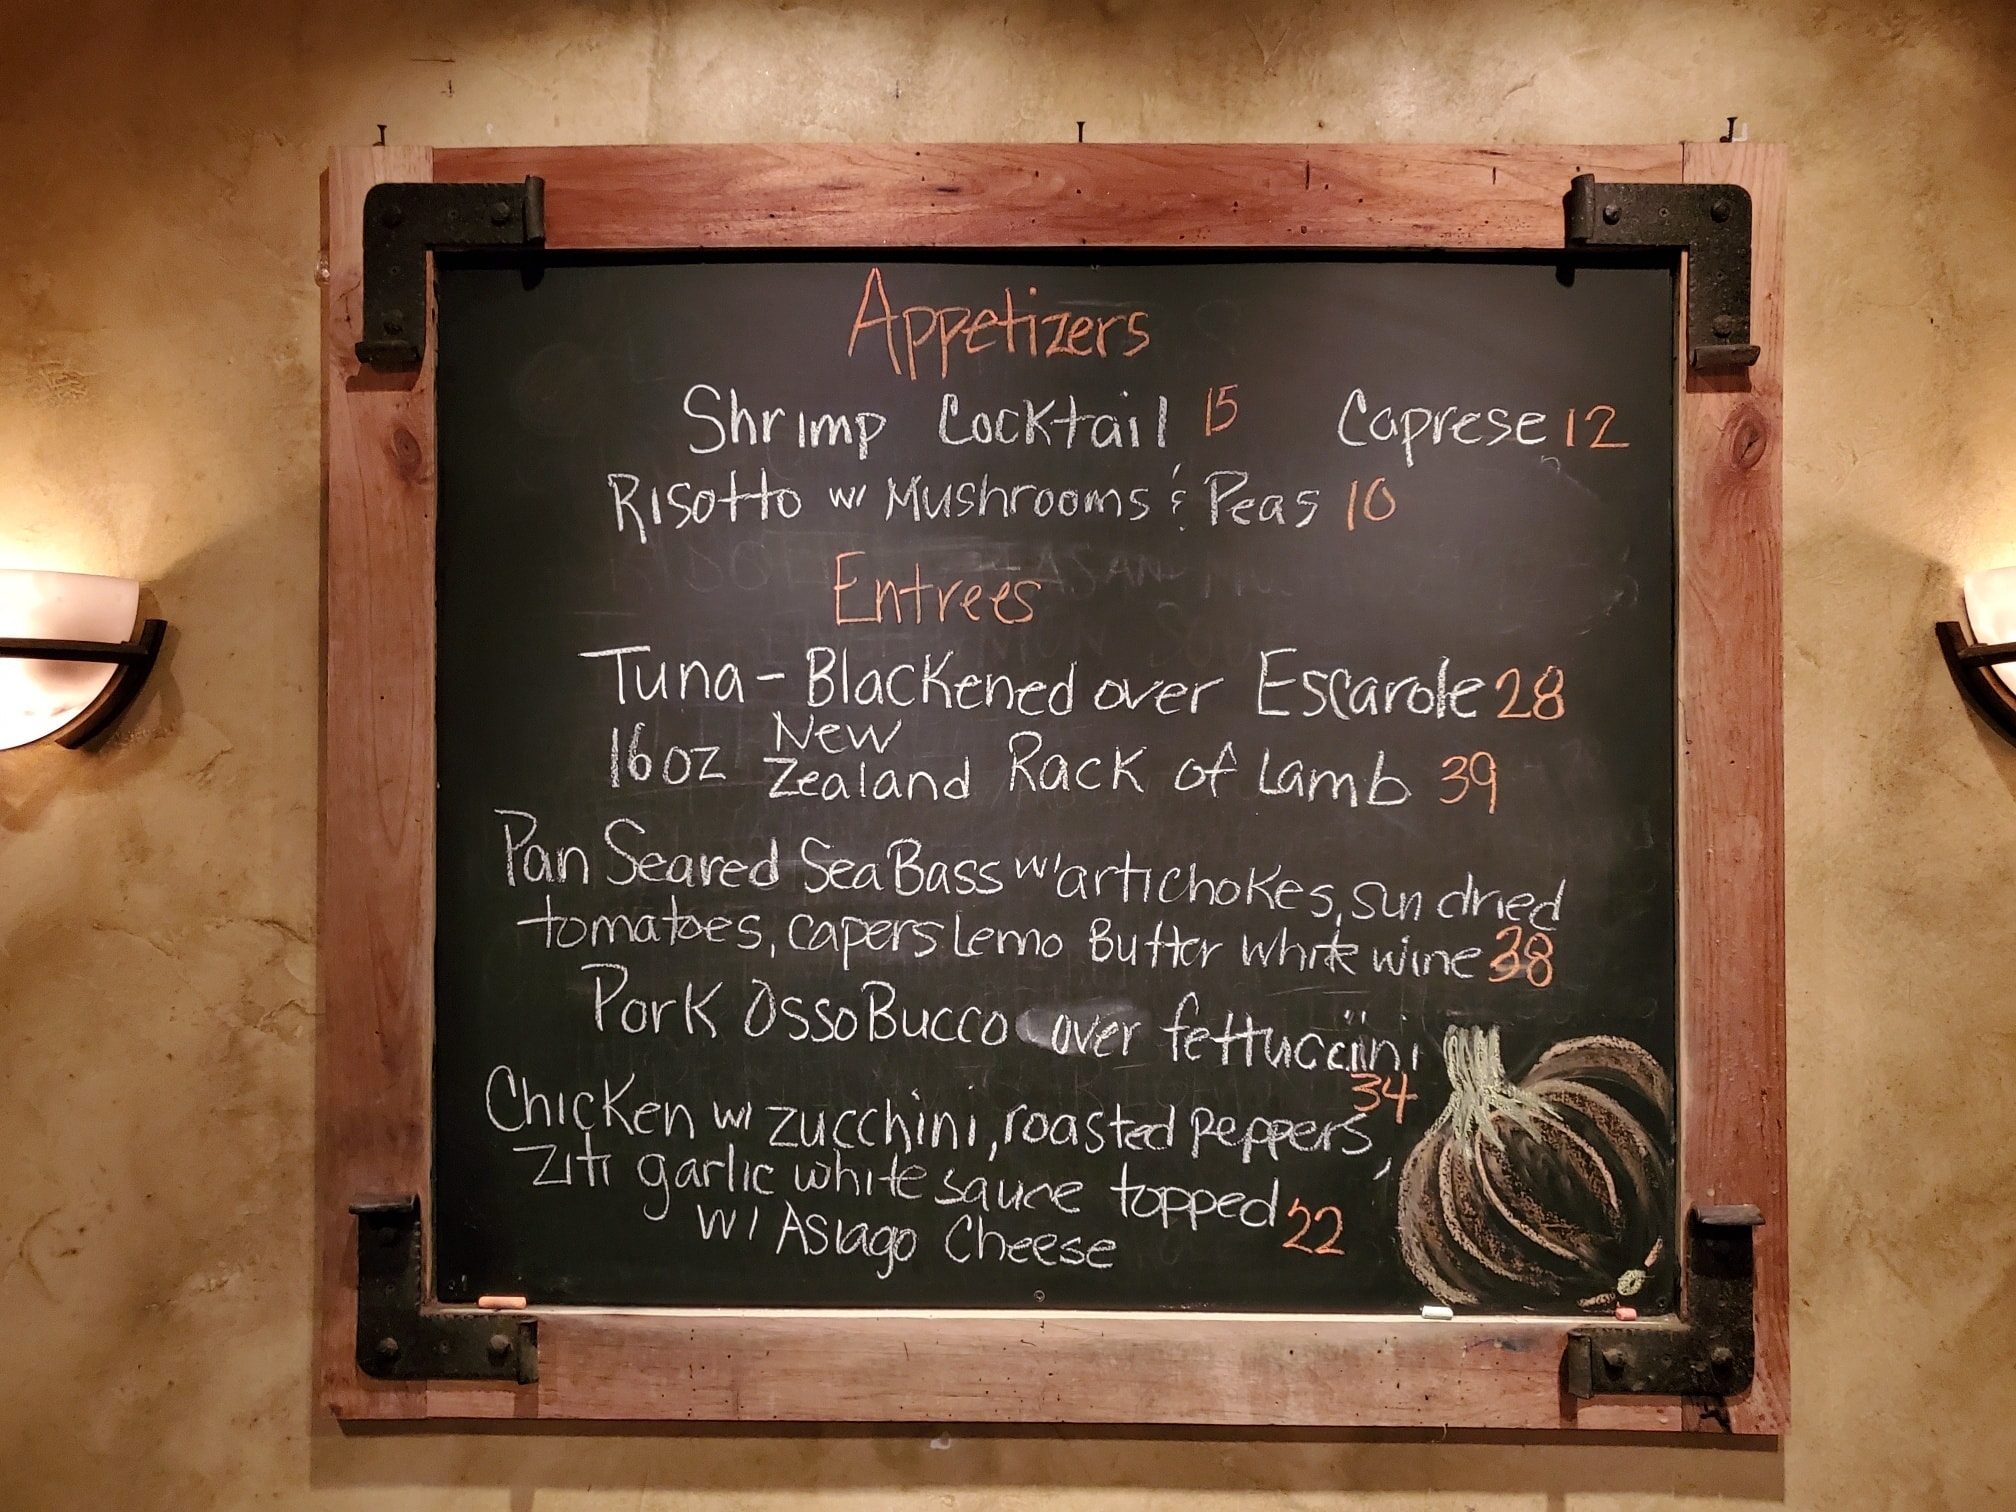 Appetizers
Shrimp Cocktail 15 Caprese 12
Risotto w/ Mushrooms & Peas 10
Entrees
Tuna - Blackened over Escarole 28
16oz New Zealand Rack of Lamb 39
Pan Seared Sea Bass w/ artichokes, sun dried
tomatoes, capers Lemo Butter white wine 38
Pork Osso Bucco over fettuccini
34
Chicken w/ zucchini, roasted peppers,
Ziti garlic white sauce topped 22
w/ Asiago Cheese